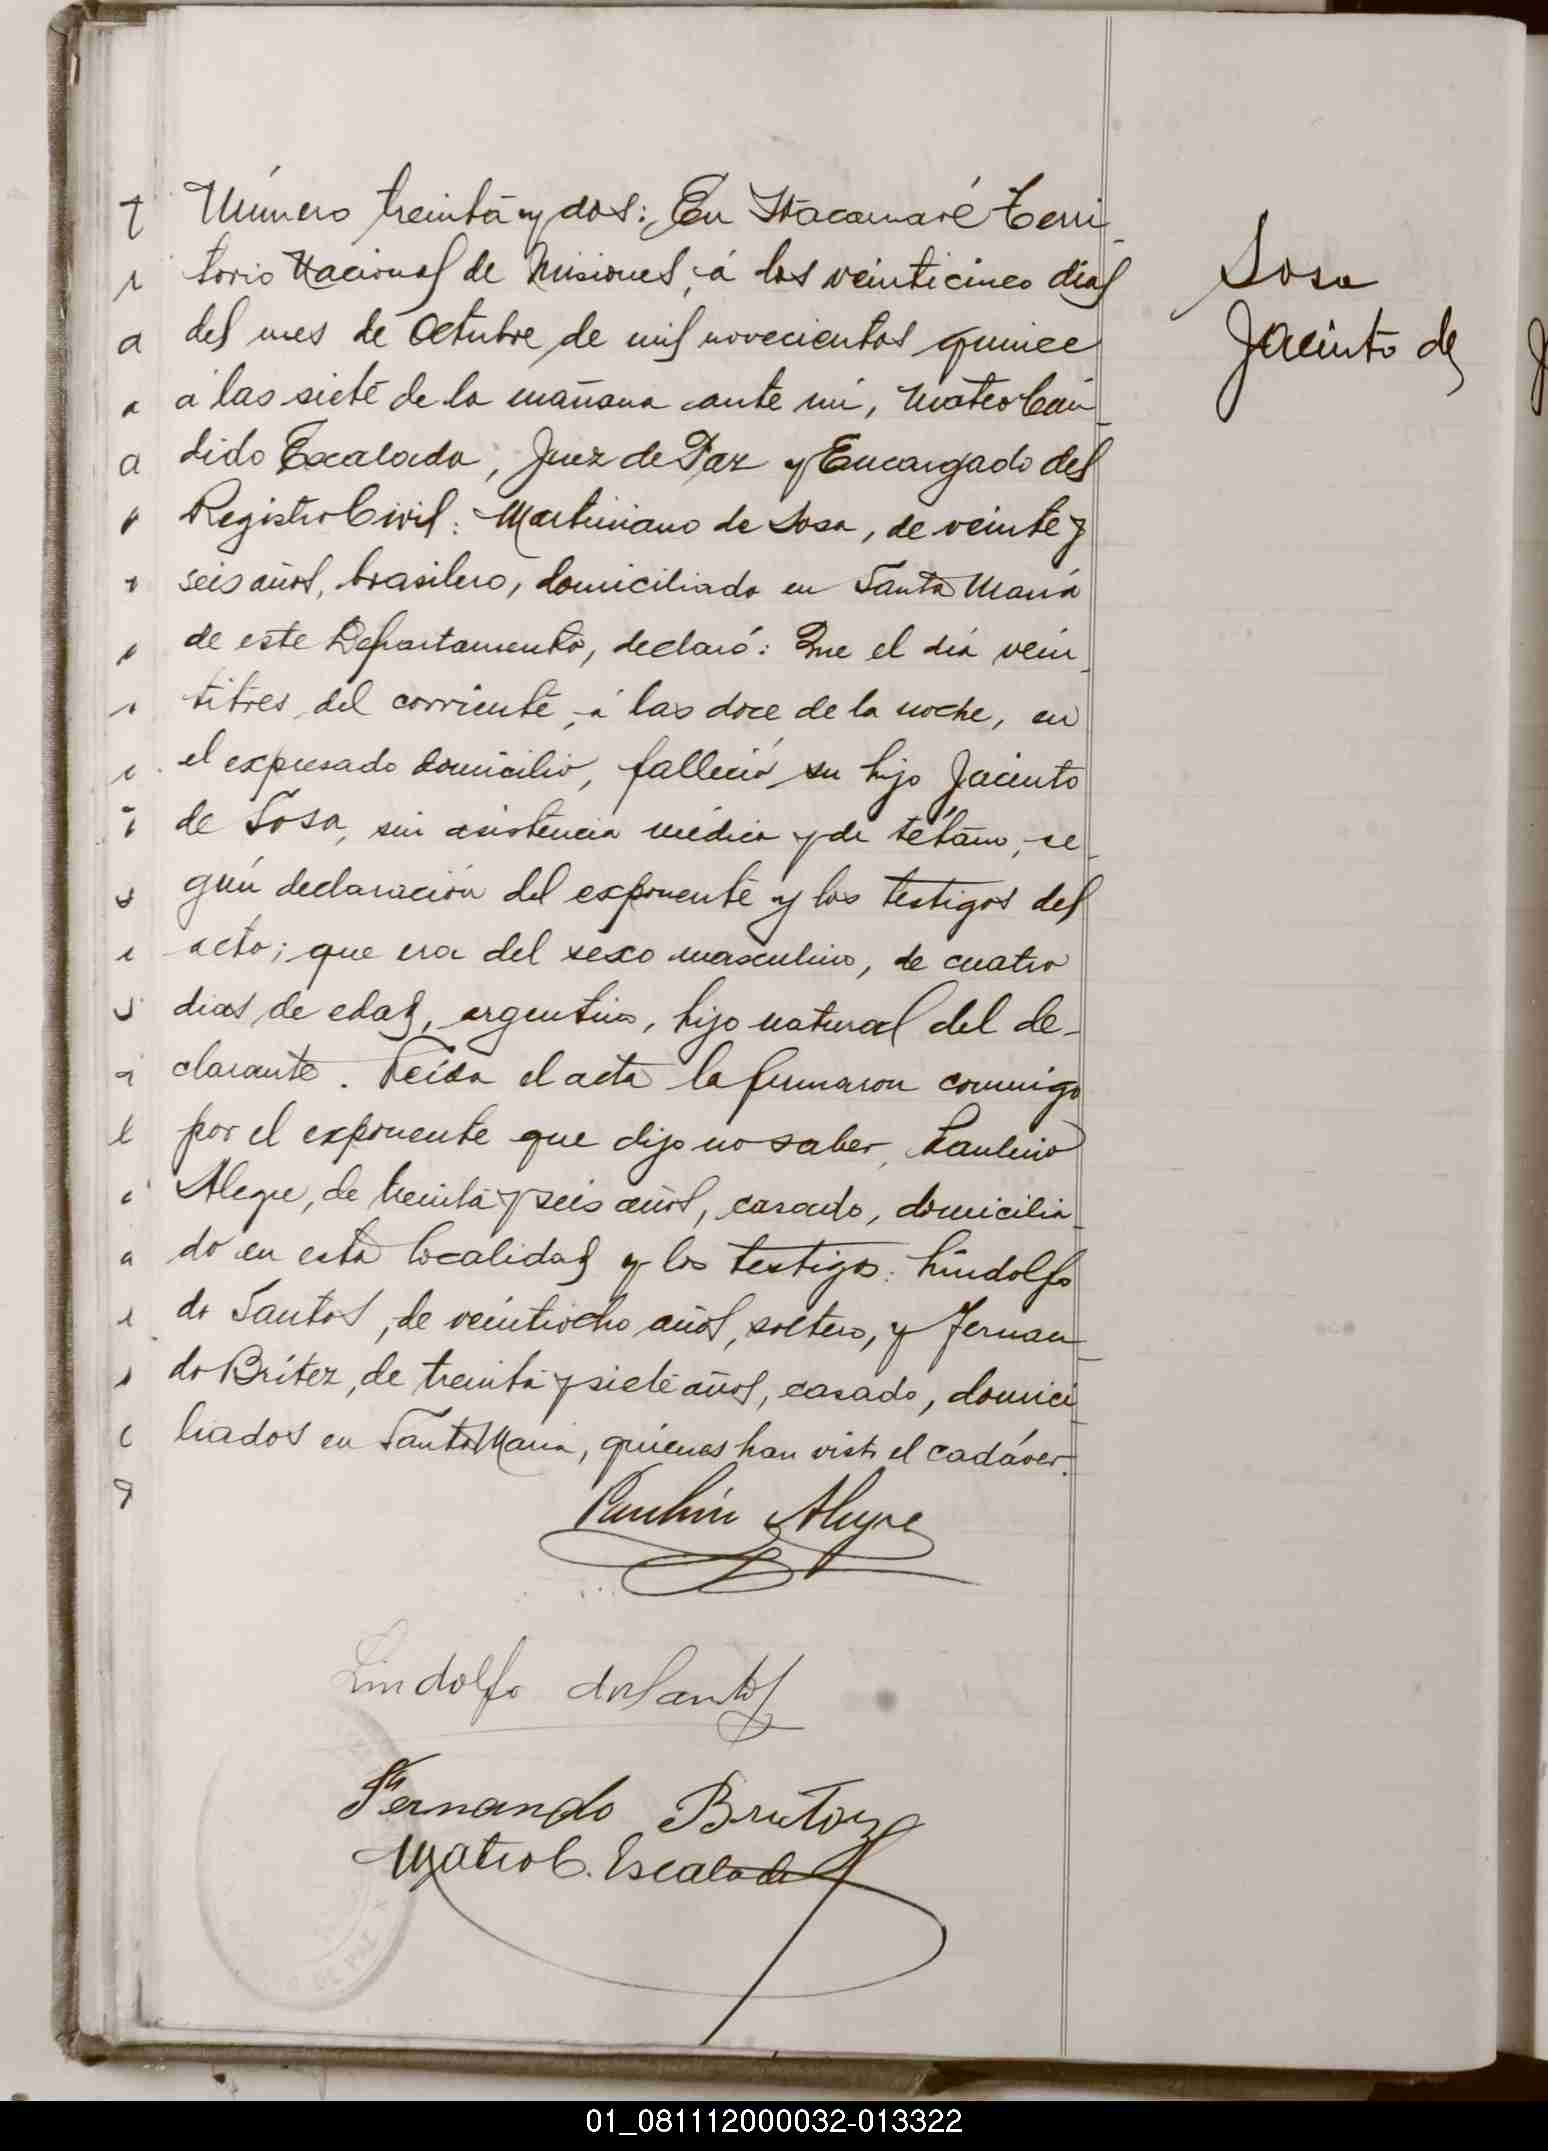 Número treinta y dos: En Itacaruaré Terri-
torio Nacional de Misiones, á los veinticinco dias
del mes de Octubre de mil novecientos quince
á las siete de la mañana ante mi, Mateo Cán-
dido Escalada, Juez de Paz y Encargado del
Registro Civil: Martiniano de Sosa, de veinte y
seis años, brasilero, domiciliado en Santa María
de este Departamento, declaró: Que el día vein-
titres del corriente, á las doce de la noche, en
el expresado domicilio, falleció su hijo Jacinto
de Sosa, sin asistencia médica y de tétano, se-
gún declaración del exponente y los testigos del
acto; que era del sexo masculino, de cuatro
dias de edad, argentino, hijo natural del de-
clarante. Leída el acta la firmaron conmigo
por el exponente que dijo no saber, Paulino
Alegre, de treinta y seis años, casado, domicilia-
do en esta localidad y los testigos: Lindolfo
do Santos, de veintiocho años, soltero, y Fernan-
do Brítez, de treinta y siete años, casado, domici-
liados en Santa Maria, quienes han visto el cadáver.
Sosa
Jacinto de
Paulino Alegre
Lindolfo dos Santos
Fernando Britez
Mateo C. Escalada
DE PAZ
01_081112000032-013322